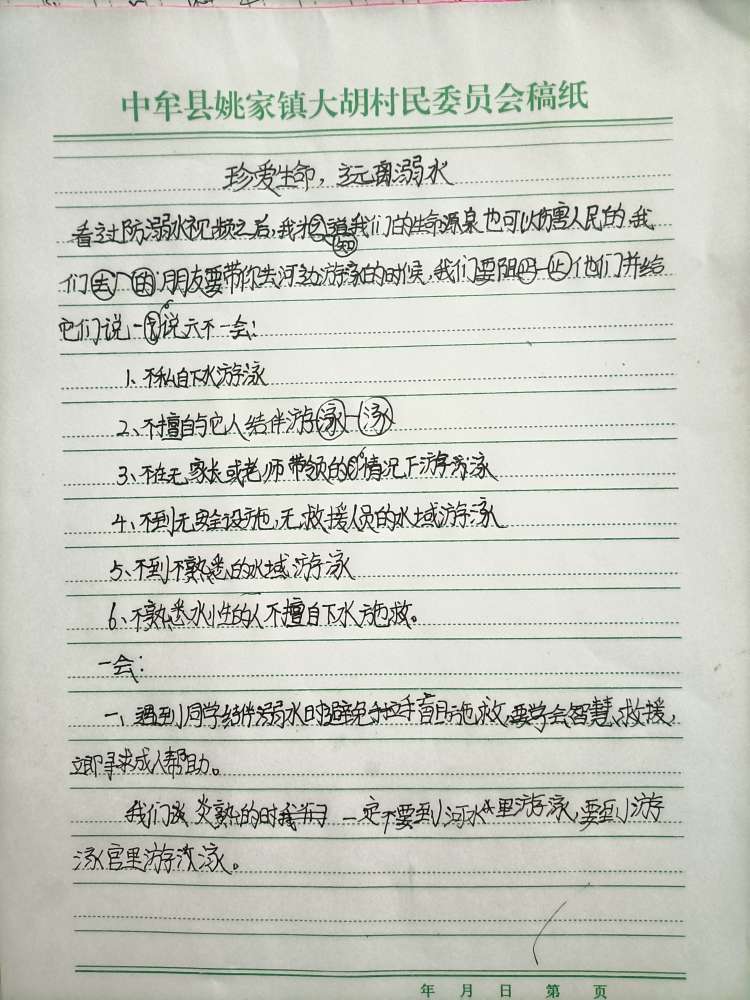 中牟县姚家镇大胡村民委员会稿纸
珍爱生命，远离溺水
看过防溺水视频之后，我知道我们的生命源泉也可以伤害人民的。我
们的朋友要带你去河边游泳的时候，我们要阻止他们并给
它们说一说六不一会：
1、不私自下水游泳
2、不擅自与它人结伴游泳
3、不在无家长或老师带领的情况下游泳
4、不到无安全设施，无救援人员的水域游泳
5、不到不熟悉的水域游泳
6、不熟悉水性的人不擅自下水施救。
一会：
一、遇到同学结伴溺水时避免手拉手盲目施救，要学会智慧救援，
立即寻求成人帮助。
我们炎熟的时 一定不要到河水里游泳，要到游
泳宫里游泳。
年 月 日 第 页